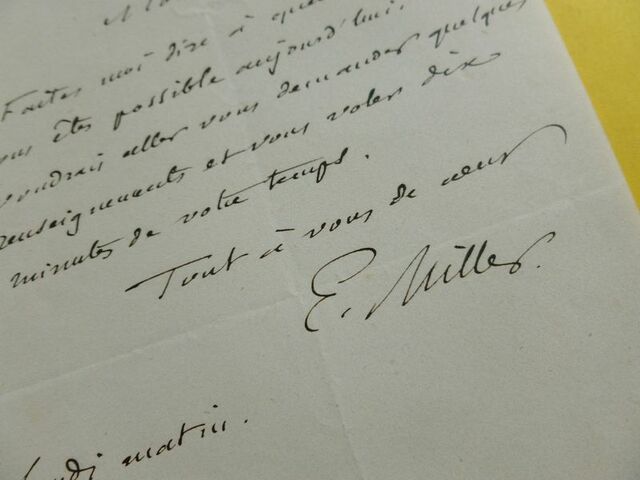 Faites moi dire à
vous êtes possible aujourd'hui.
voudrais aller vous demander quelques
renseignements et vous voler dix
minutes de votre temps.
Tout à vous de cœur
E. Miller.
matin.